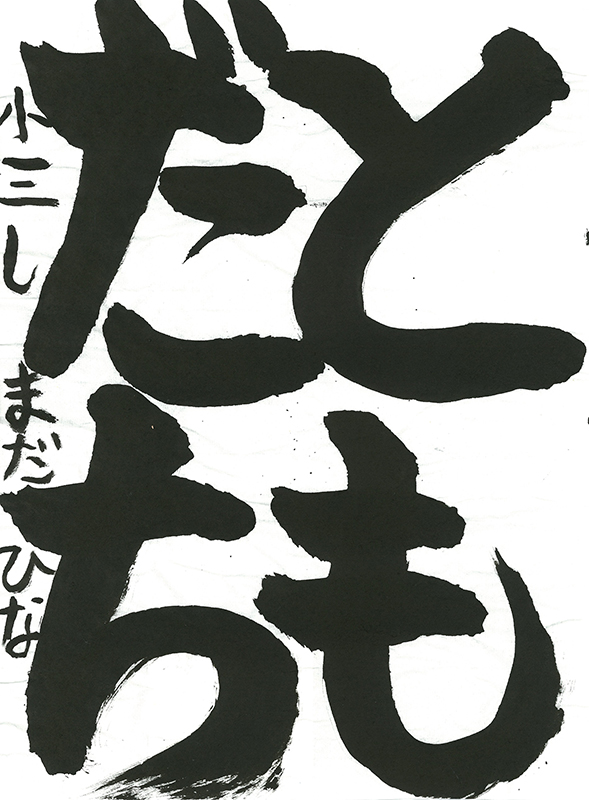 とも
だち
小三し まだ ひな